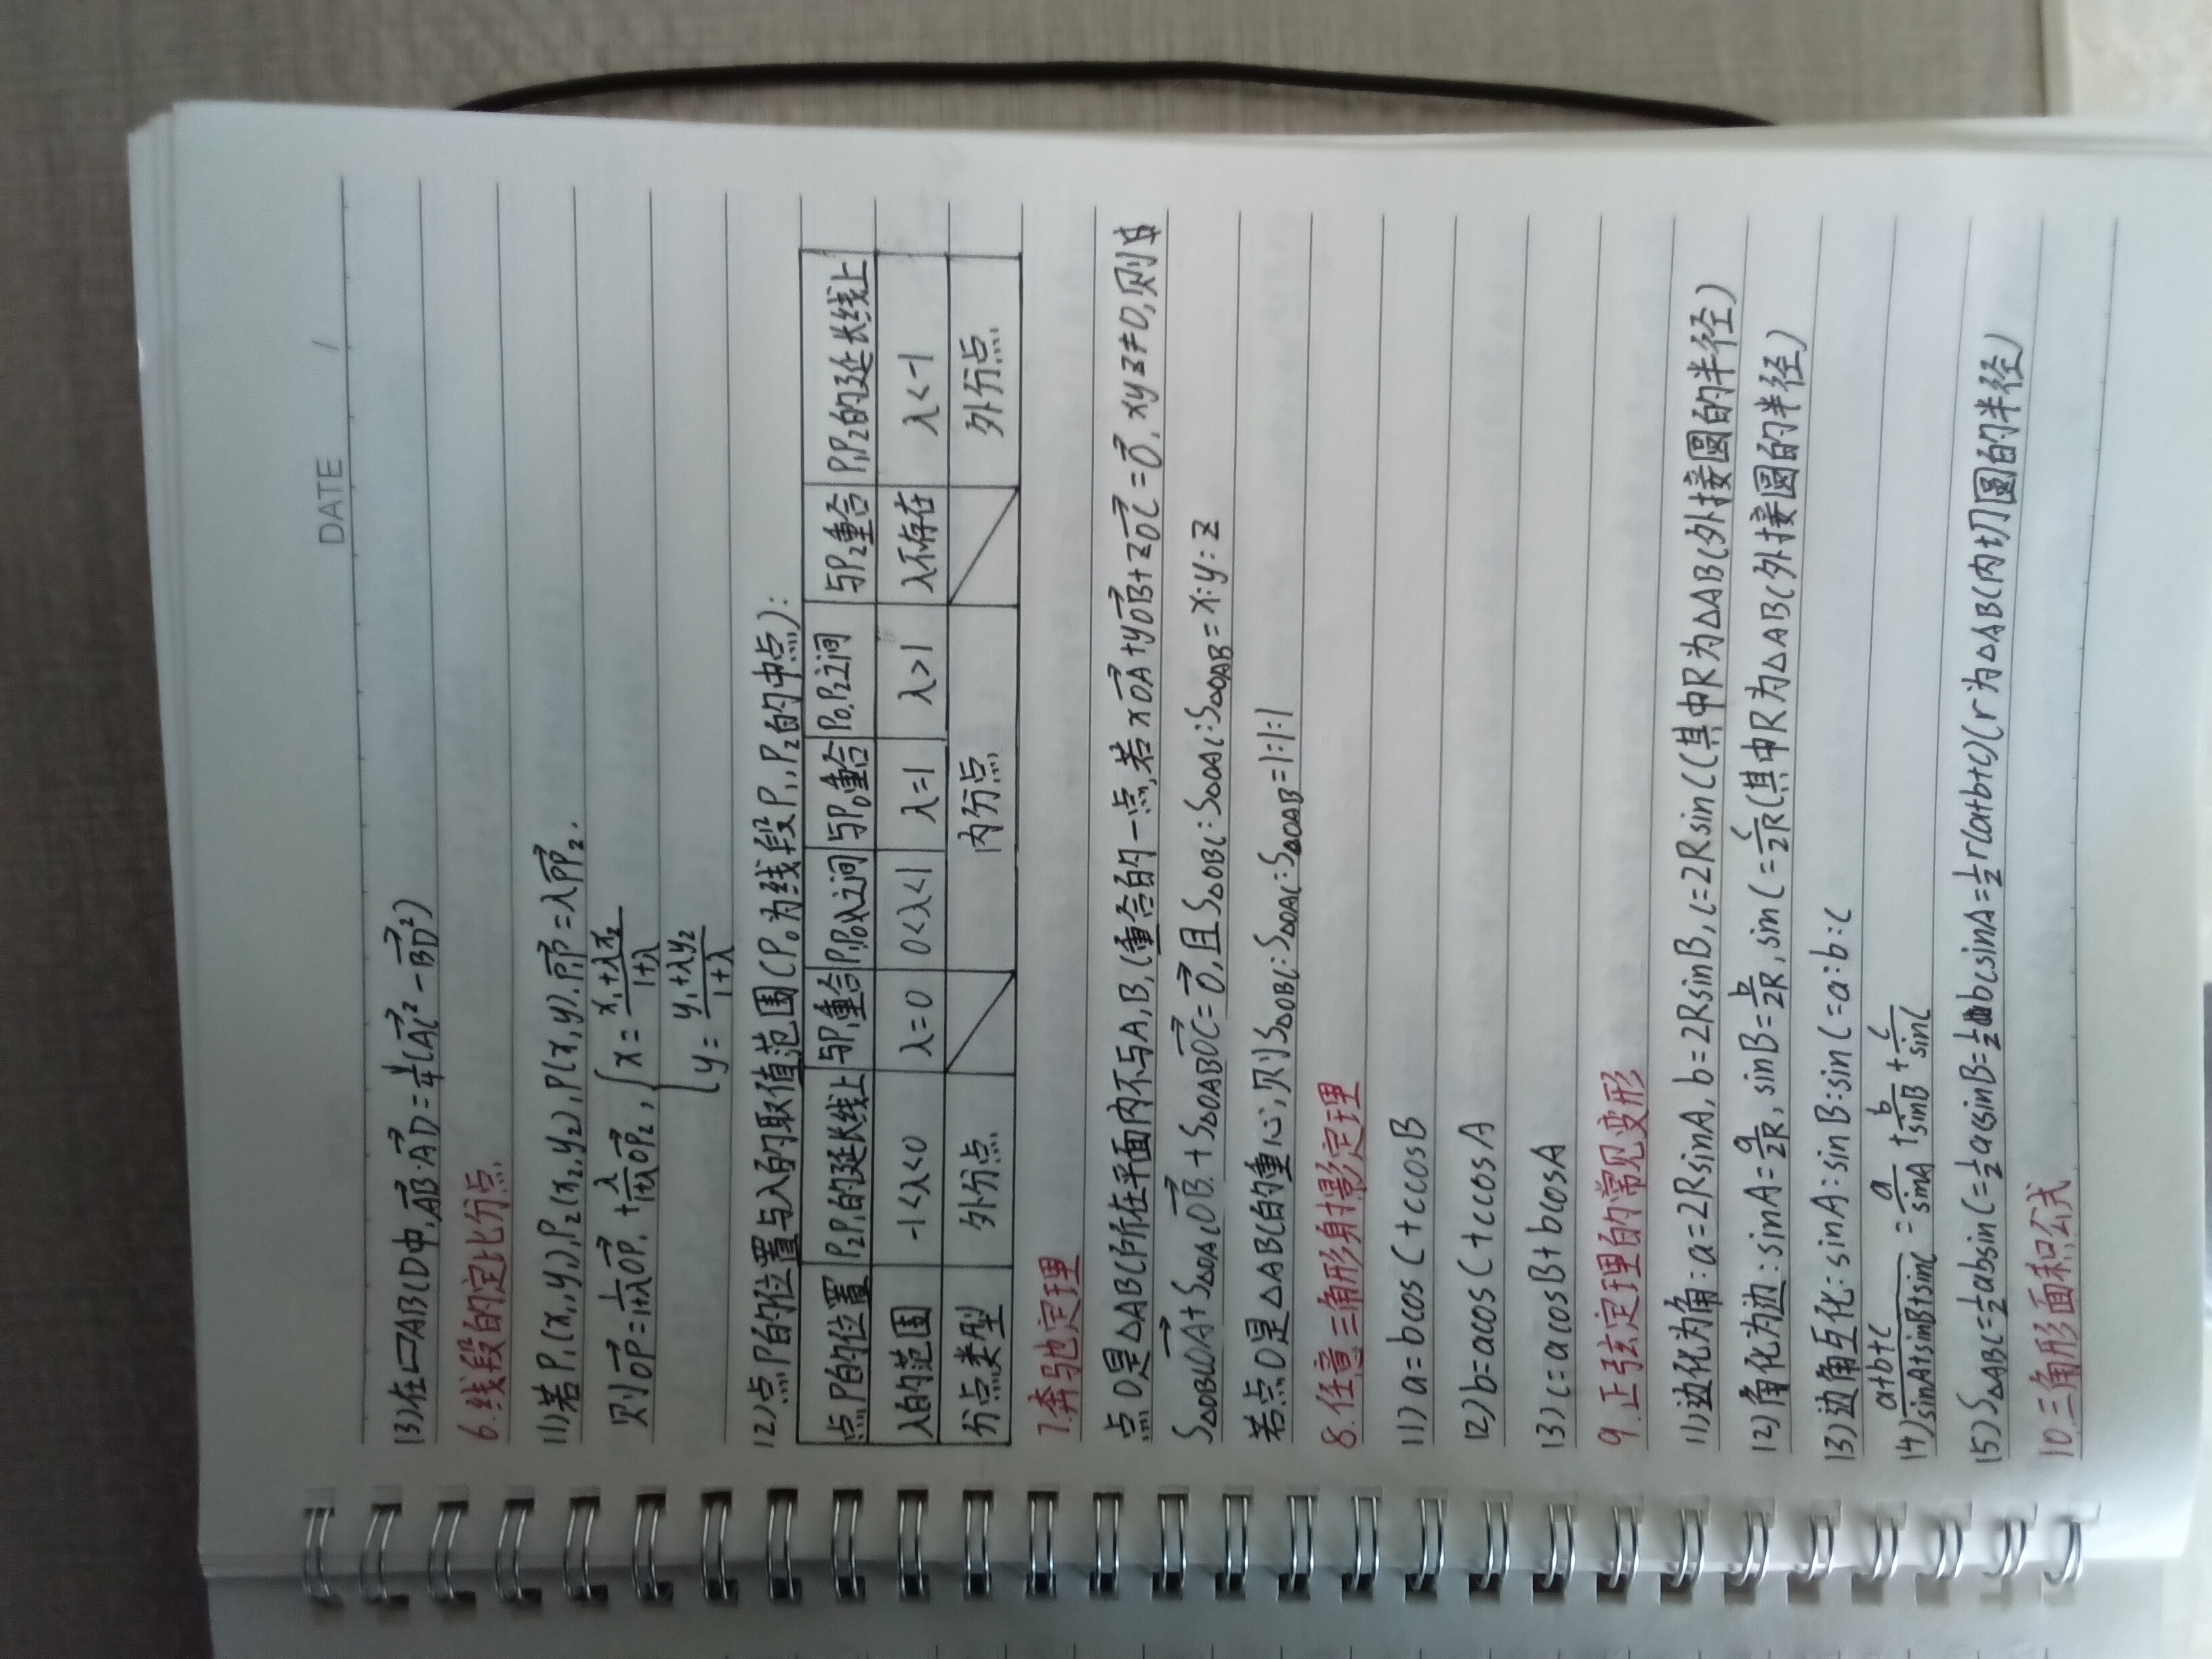 DATE /
(3)在▱ABCD中,AB→·AD→=1/4(AC→²-BD→²)
6.线段的定比分点
(1)若P₁(x₁,y₁),P₂(x₂,y₂),P(x,y).P₁P→=λPP₂→.
则OP→=1/(1+λ)OP₁→+λ/(1+λ)OP₂→,{x=(x₁+λx₂)/(1+λ)
y=(y₁+λy₂)/(1+λ)
(2)点P的位置与λ的取值范围(P₀为线段P₁,P₂的中点):
点P的位置 P₂P₁的延长线上 与P₁重合 P₁P₀之间 与P₀重合 P₀,P₂之间 与P₂重合 P₁P₂的延长线上
λ的范围 -1<λ<0 λ=0 0<λ<1 λ=1 λ>1 λ不存在 λ<-1
分点类型 外分点 内分点 外分点
7.奔驰定理
点O是△ABC所在平面内不与A,B,C重合的一点,若xOA→+yOB→+zOC→=0→,xyz≠0,则
S△OBCOA→+S△OACOB→+S△OABOC→=0→,且S△OBC:S△OAC:S△OAB=x:y:z
若点O是△ABC的重心,则S△OBC:S△OAC:S△OAB=1:1:1
8.任意三角形射影定理
(1)a=bcosC+ccosB
(2)b=acosC+ccosA
(3)c=acosB+bcosA
9.正弦定理的常见变形
(1)边化为角:a=2RsinA,b=2RsinB,c=2RsinC(其中R为△ABC外接圆的半径)
(2)角化为边:sinA=a/2R,sinB=b/2R,sinC=c/2R(其中R为△ABC外接圆的半径)
(3)边角互化:sinA:sinB:sinC=a:b:c
(4)(a+b+c)/(sinA+sinB+sinC)=a/sinA+b/sinB+c/sinC
(5)S△ABC=1/2absinC=1/2acsinB=1/2bcsinA=1/2r(a+b+c)(r为△ABC内切圆的半径)
10.三角形面积公式